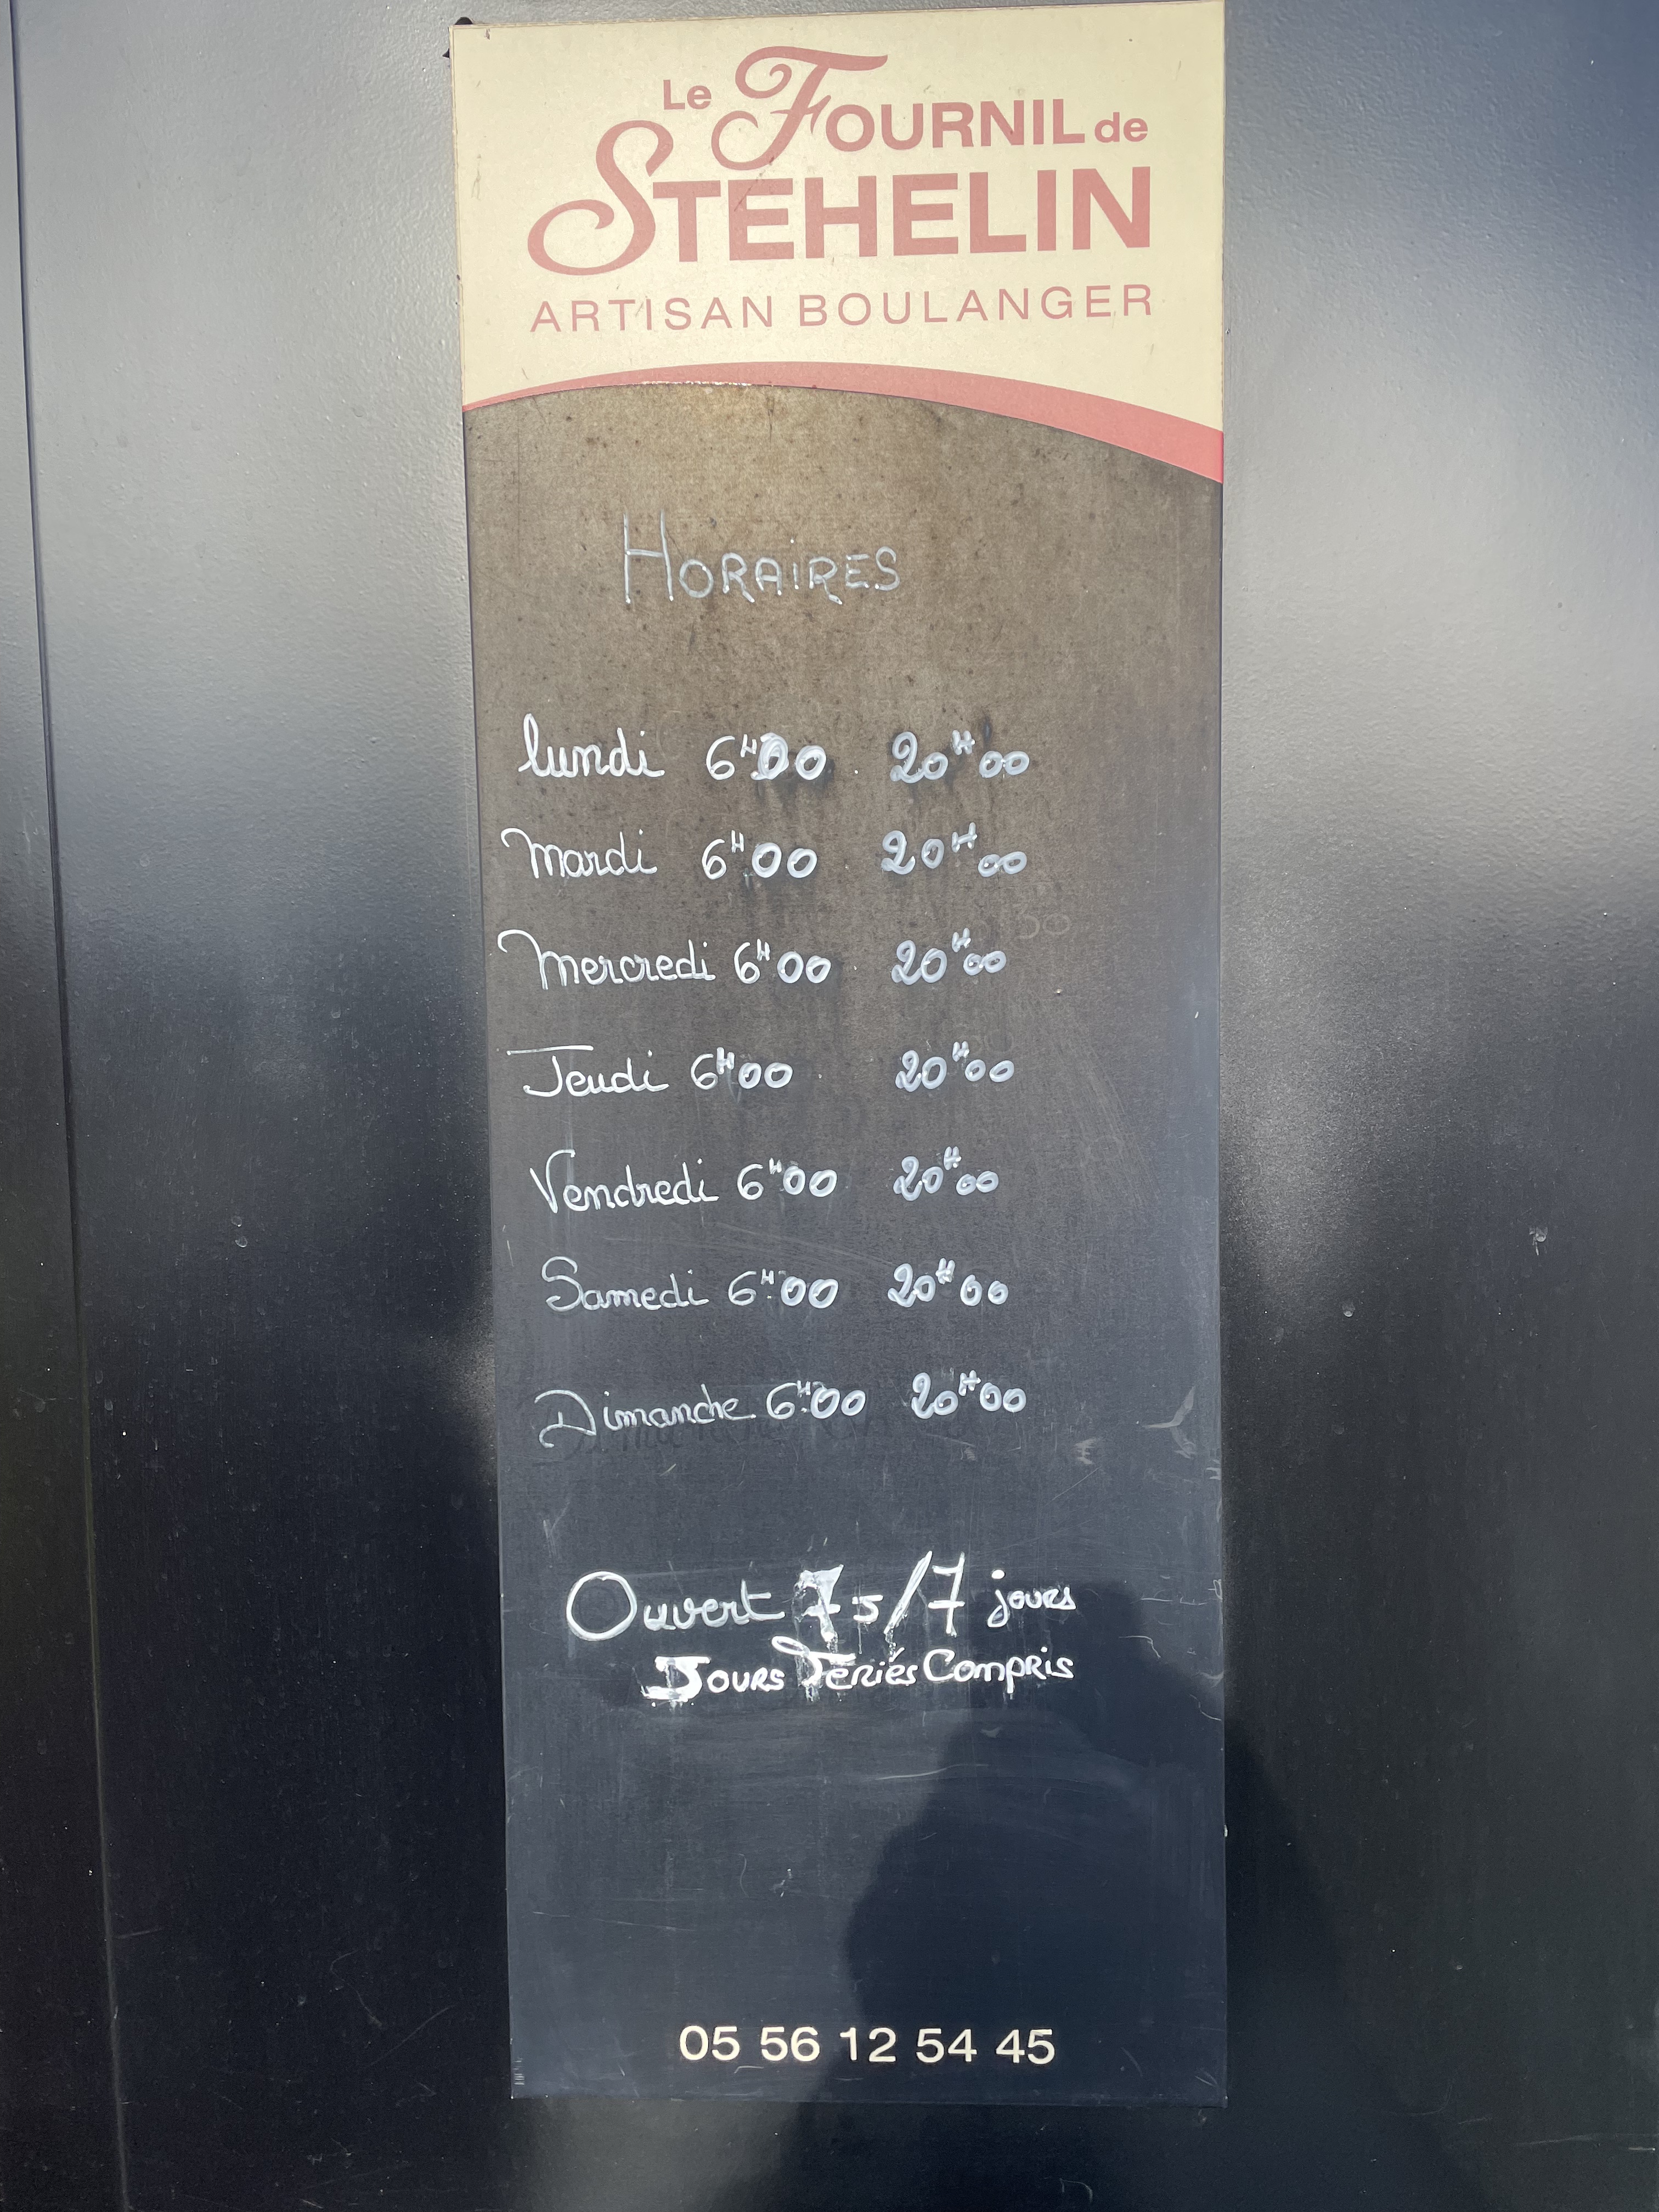 Le FOURNIL de
STEHELIN
ARTISAN BOULANGER
HORAIRES
lundi 6H00 20H00
Mardi 6H00 20H00
Mercredi 6H00 20H00
Jeudi 6H00 20H00
Vendredi 6H00 20H00
Samedi 6H00 20H00
Dimanche 6H00 20H00
Ouvert 7J/7 jours
JOURS Fériés Compris
05 56 12 54 45